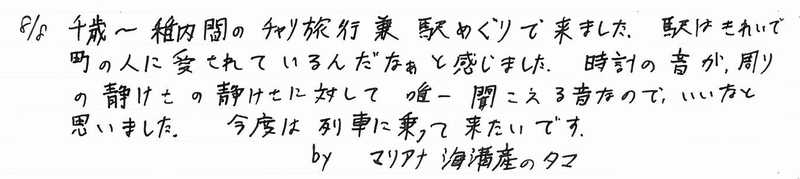 8/8 千歳〜稚内間のチャリ旅行兼駅めぐりで来ました。駅はきれいで
町の人に愛されているんだなぁと感じました。時計の音が、周り
の静けさの静けさに対して唯一聞こえる音なので、いいなと
思いました。今度は列車に乗って来たいです。
by マリアナ海溝産のタマ